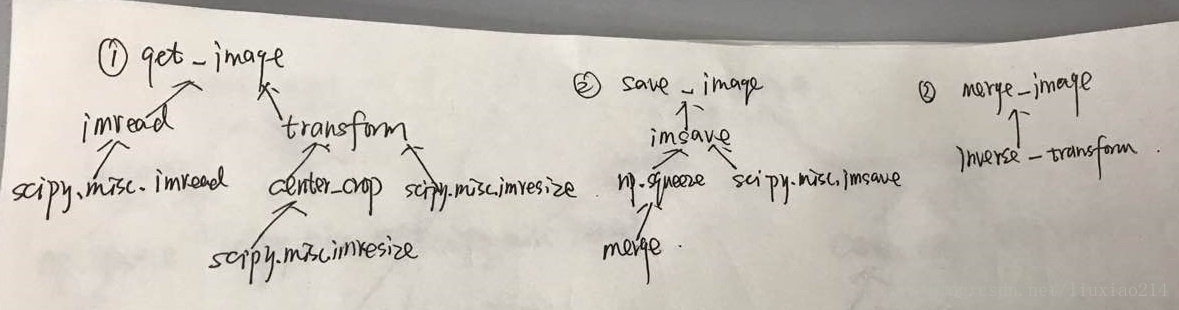 ① get_image
imread
transform
scipy.misc.imread
center_crop
scipy.misc.imresize
scipy.misc.imresize
② save_image
imsave
np.squeeze
scipy.misc.imsave
merge
② merge_image
inverse_transform
csdn.net/liuxiao214